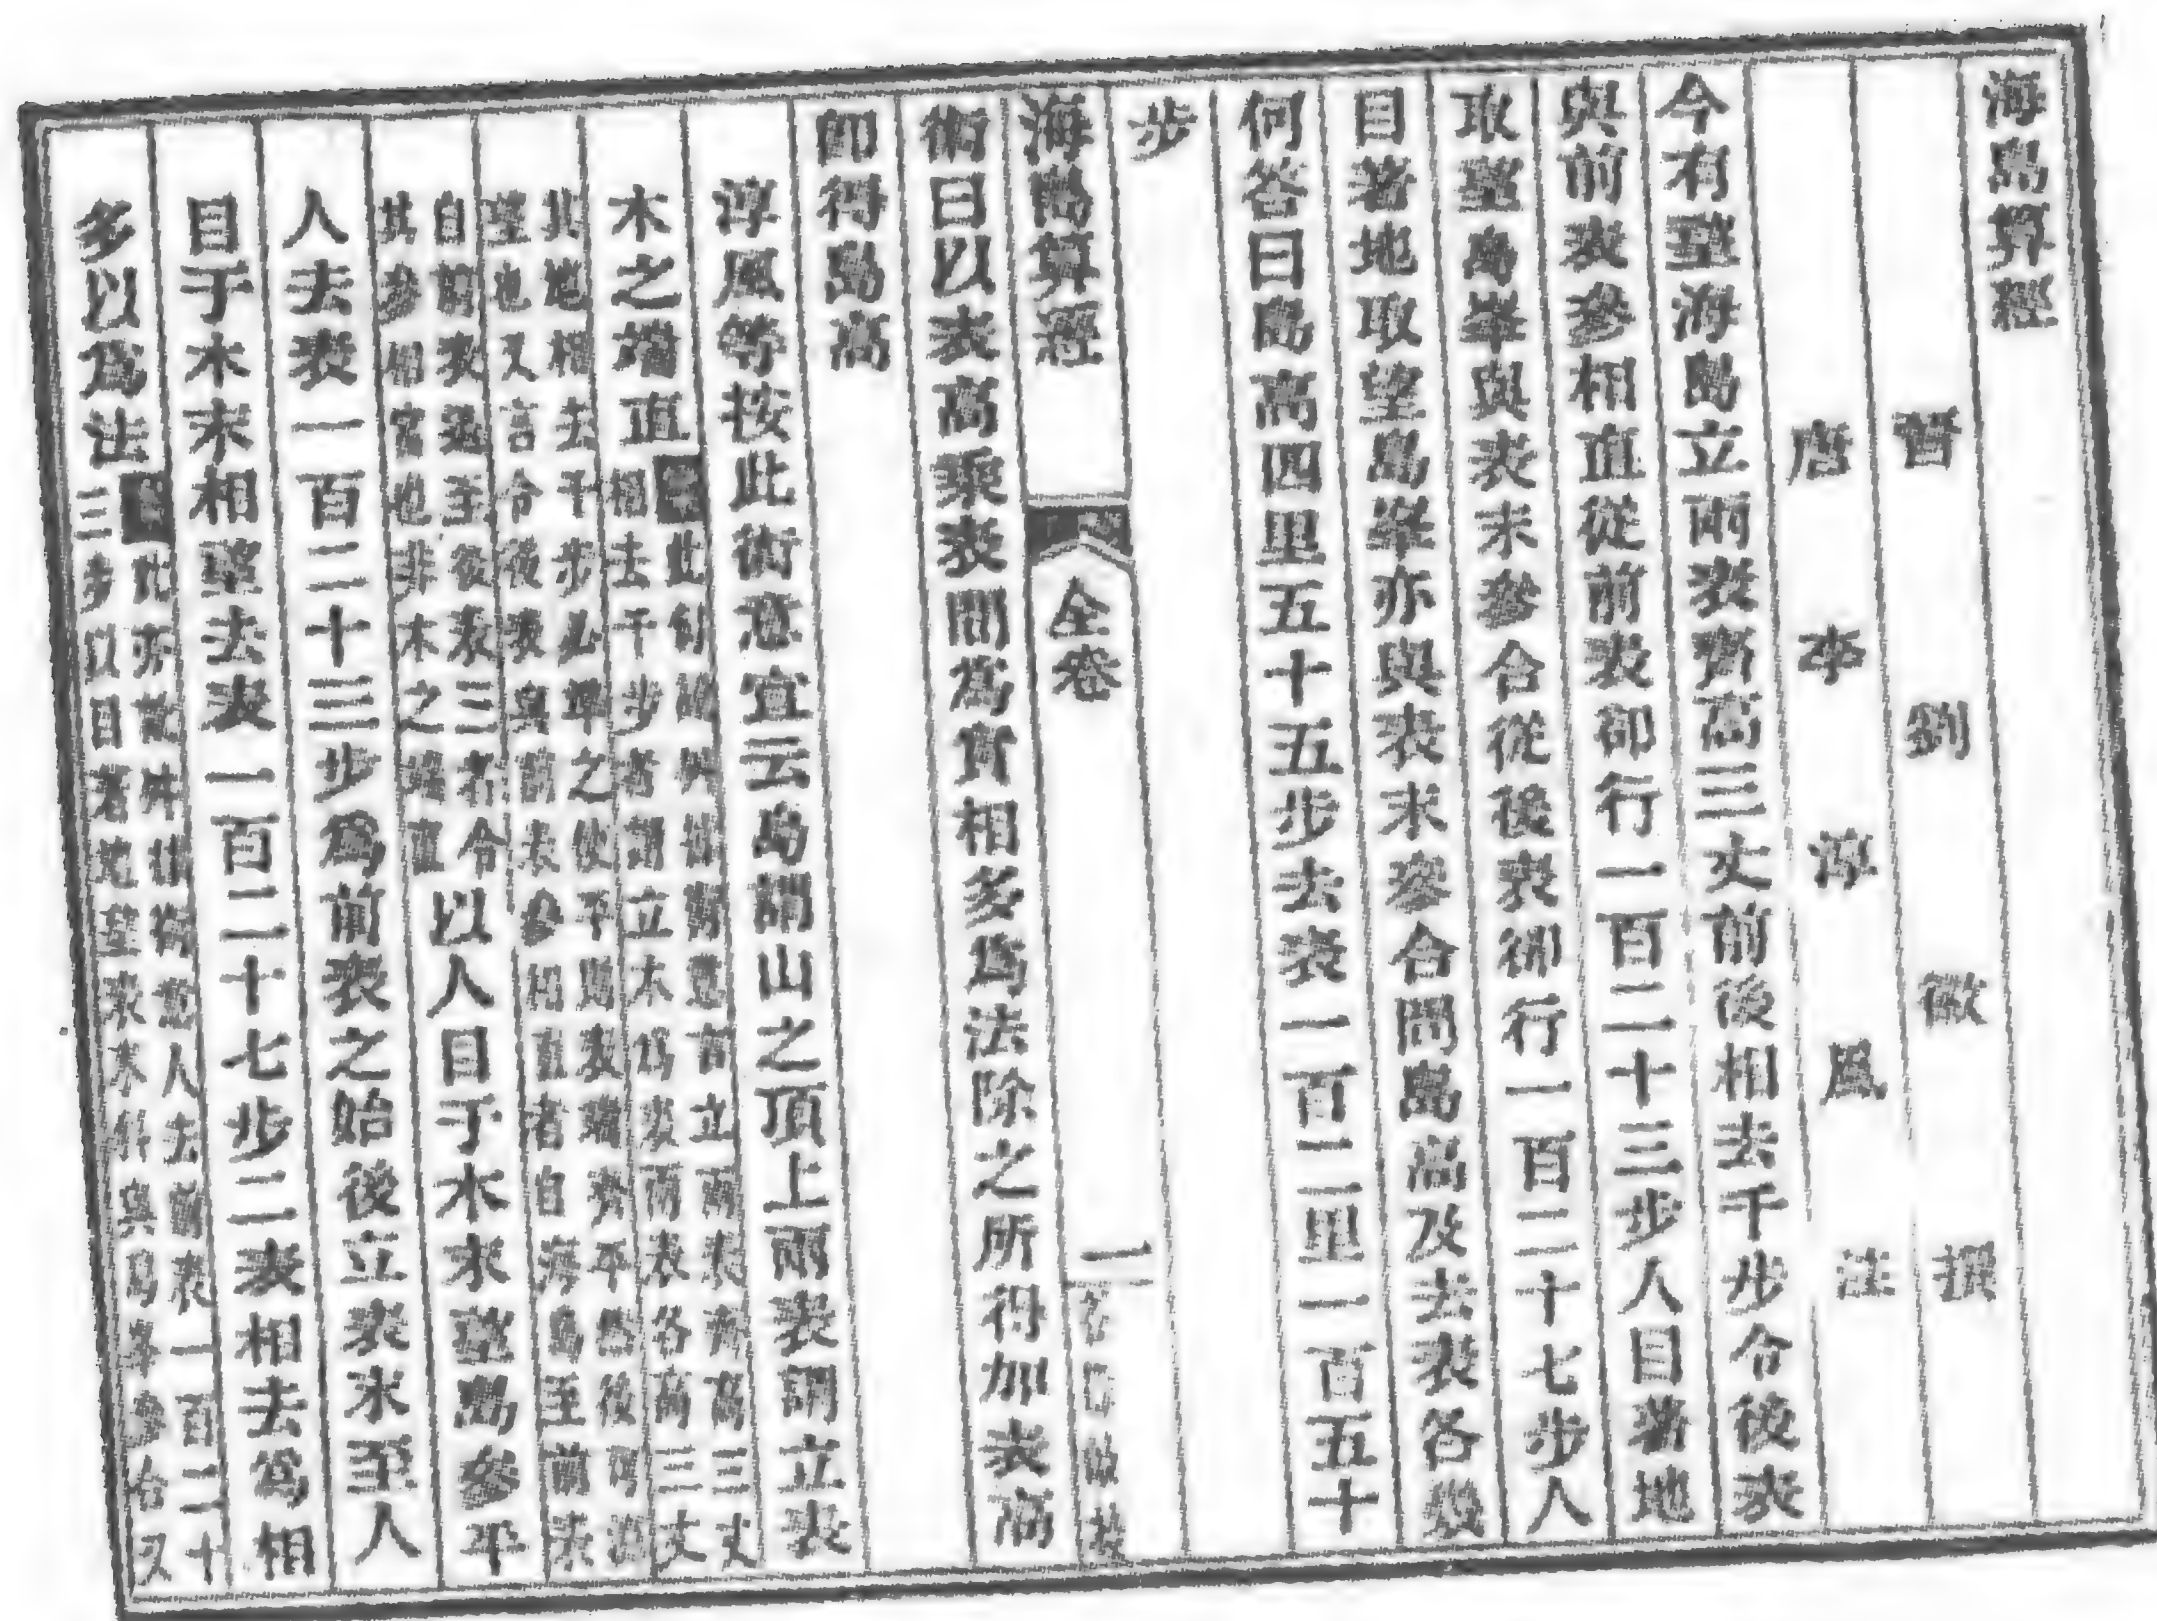 海島算經
晉劉徽撰
唐李淳風注
今有望海島立兩表齊高三丈前後相去千步令後表
與前表參相直從前表卻行一百二十三步人目著地
取望島峯與表末參合從後表卻行一百二十七步人
目著地取望島峯亦與表末參合問島高及去表各幾
何答曰島高四里五十五步去表一百二里一百五十
步
海島算經
全卷
一
術曰以表高乘表間為實相多為法除之所得加表高
即得島高
淳風等按此術意宜云島謂山之頂上兩表謂立表
木之端直
相去千步者謂立木為表兩表各高三丈
其地相去千步必埠之使平則表端齊平
望也又言令後表與前表參相直者自海島至前表
自前表望至後表三者令
其參相當也非木之端直
以人目于木末望島參平
人去表一百二十三步爲前表之始後立表末至人
目于木末相望去表一百二十七步二表相去爲相
多以爲法
三步以目著地望表末斜與島峯參合又